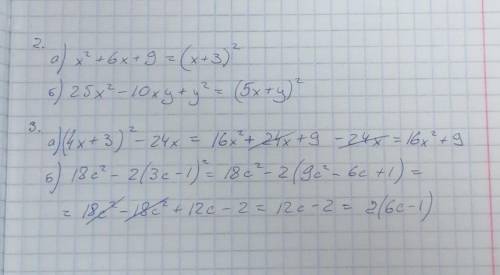 2.
а) x² + 6x + 9 = (x+3)²
б) 25x² - 10xy + y² = (5x+y)²
3.
а) (4x+3)² - 24x = 16x² + 24x + 9 - 24x = 16x² + 9
б) 18c² - 2(3c-1)² = 18c² - 2(9c² - 6c + 1) =
= 18c² - 18c² + 12c - 2 = 12c - 2 = 2(6c-1)